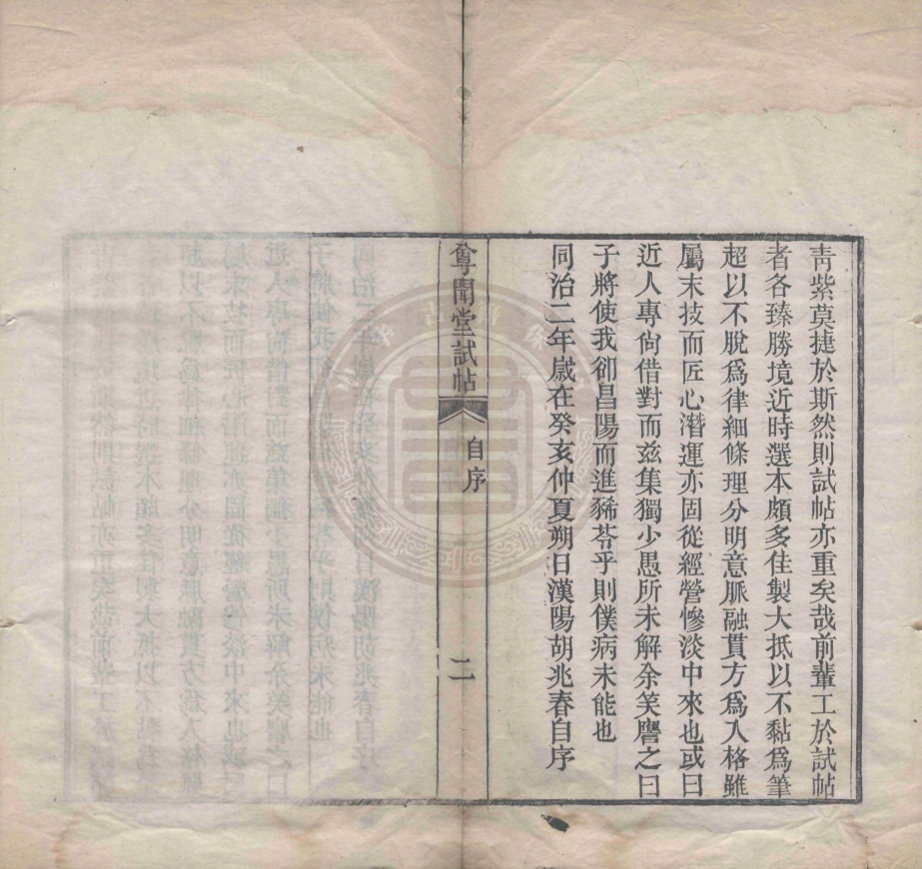 青紫莫捷於斯然則試帖亦重矣哉前輩工於試帖
者各臻勝境近時選本頗多佳製大抵以不黏爲筆
超以不脫爲律細條理分明意脈融貫方爲入格雖
屬末技而匠心潛運亦固從經營慘淡中來也或曰
近人專尙借對而兹集獨少愚所未解余笑譍之曰
子將使我卻昌陽而進豨苓乎則僕病未能也
同治二年歲在癸亥仲夏朔日漢陽胡兆春自序
尊聞堂試帖
自序
二